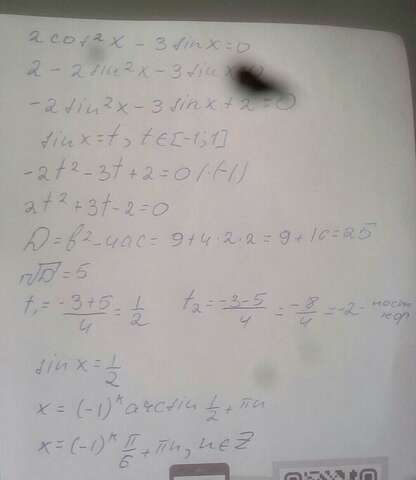 2cos²x - 3sinx = 0
2 - 2sin²x - 3sinx 0
-2sin²x - 3sinx + 2 = 0
sinx = t, t ∈ [-1; 1]
-2t² - 3t + 2 = 0 | · (-1)
2t² + 3t - 2 = 0
D = b² - 4ac = 9 + 4 · 2 · 2 = 9 + 16 = 25
√D = 5
t₁ = (-3+5)/4 = 1/2 t₂ = (-3-5)/4 = -8/4 = -2 - пост. кор
sinx = 1/2
x = (-1)ᵏ arcsin 1/2 + πn
x = (-1)ᵏ π/6 + πn, n ∈ Z